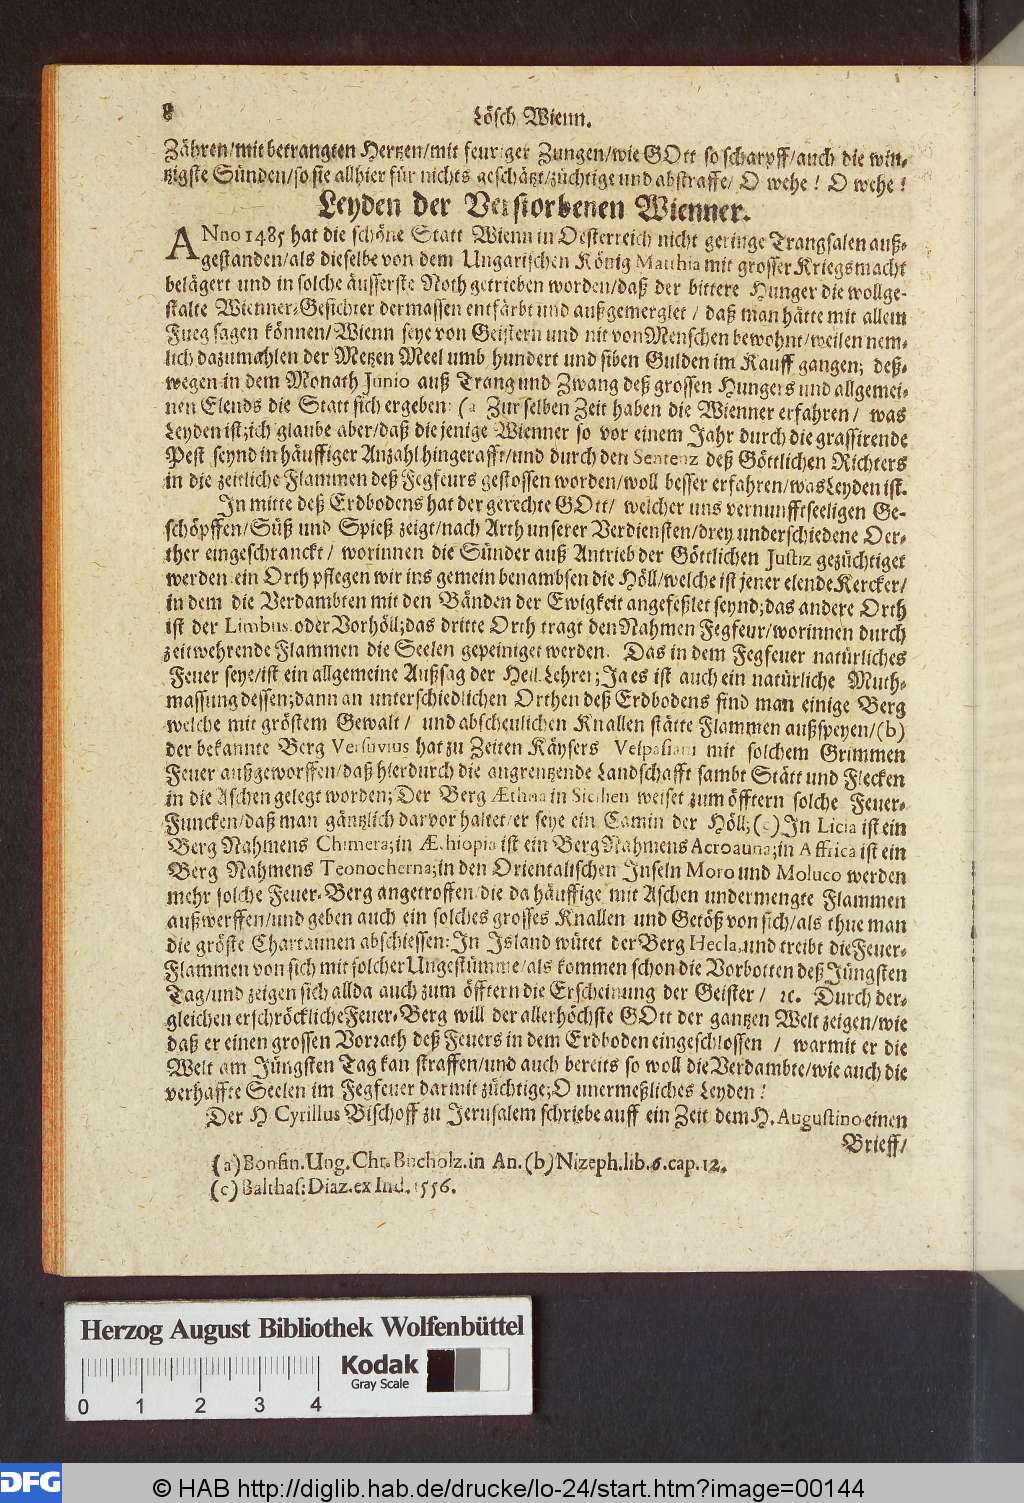 8
Lösch Wienn.
Zähren/mit betrangten Hertzen/mit feuriger Zungen/wie GOtt so scharpff/auch die win-
tzigste Sünden/so sie allhier für nichts geschätzt/züchtige und abstraffe/ O wehe! O wehe!
Leyden der Verstorbenen Wienner.
ANno 1485 hat die schöne Statt Wienn in Oesterreich nicht geringe Trangsalen auß-
gestanden/als dieselbe von dem Ungarischen König Matthia mit grosser Kriegsmacht
belägert und in solche äusserste Noth getrieben worden/daß der bittere Hunger die wollge-
stalte Wienner-Gesichter dermassen entfärbt und außgemerglet / daß man hätte mit allem
Fueg sagen können/Wienn seye von Geistern und nit von Menschen bewohnt/weilen nem-
lich dazumahlen der Metzen Meel umb hundert und siben Gulden im Kauff gangen; deß-
wegen in dem Monath Junio auß Trang und Zwang deß grossen Hungers und allgemei-
nen Elends die Statt sich ergeben: (a Zur selben Zeit haben die Wienner erfahren / was
Leyden ist; ich glaube aber/daß die jenige Wienner so vor einem Jahr durch die grassirende
Pest seynd in häuffiger Anzahl hingerafft/und durch den Sentenz deß Göttlichen Richters
in die zeitliche Flammen deß Fegfeurs gestossen worden/woll besser erfahren/was Leyden ist.
In mitte deß Erdbodens hat der gerechte GOtt/ welcher uns vernunfftseeligen Ge-
schöpffen/Süß und Spieß zeigt/nach Arth unserer Verdiensten/drey underschiedene Oer-
ther eingeschranckt/ worinnen die Sünder auß Antrieb der Göttlichen Justiz gezüchtiget
werden ein Orth pflegen wir ins gemein benambsen die Höll/welche ist jener elende Kercker/
in dem die Verdambten mit den Bänden der Ewigkeit angefeßlet seynd;das andere Orth
ist der Limbus oder Vorhöll;das dritte Orth tragt den Nahmen Fegfeur/worinnen durch
zeitwehrende Flammen die Seelen gepeiniget werden. Das in dem Fegfeuer natürliches
Feuer seye/ist ein allgemeine Außsag der Heil. Lehrer;Ja es ist auch ein natürliche Muth-
massung dessen;dann an unterschiedlichen Orthen deß Erdbodens sind man einige Berg
welche mit gröstem Gewalt / und abscheulichen Knallen stätte Flammen außspeyen/(b)
der bekannte Berg Versuvius hat zu Zeiten Käysers Vespasiani mit solchem Grimmen
Feuer außgeworffen/daß hierdurch die angrentzende Landschafft sambt Stätt und Flecken
in die Aschen gelegt worden;Der Berg Æthna in Sicilien weiset zum öfftern solche Feuer-
Funcken/daß man gäntzlich darvor haltet/er seye ein Camin der Höll;(c)In Licia ist ein
Berg Nahmens Chimera;in Æthiopia ist ein Berg Nahmens Acroauna;in Affrica ist ein
Berg Nahmens Teonocherna;in den Orientalischen Inseln Moro und Moluco werden
mehr solche Feuer-Berg angetroffen/die da häuffige mit Aschen undermengte Flammen
außwerffen/und geben auch ein solches grosses Knallen und Getöß von sich/als thue man
die gröste Chartaunen abschiessen:In Island wütet der Berg Hecla,und treibt die Feuer-
Flammen von sich mit solcher Ungestümme/als kommen schon die Vorbotten deß Jüngsten
Tag/und zeigen sich allda auch zum öfftern die Erscheinung der Geister/ ꝛc. Durch der-
gleichen erschröckliche Feuer-Berg will der allerhöchste GOtt der gantzen Welt zeigen/wie
daß er einen grossen Vorrath deß Feuers in dem Erdboden eingeschlossen / warmit er die
Welt am Jüngsten Tag kan straffen/und auch bereits so woll die Verdambte/wie auch die
verhaffte Seelen im Fegfeuer darmit züchtige;O unermeßliches Leyden!
Der H Cyrillus Bischoff zu Jerusalem schriebe auff ein Zeit dem H. Augustino einen
Brieff/
(a) Bonfin. Ung. Chr. Bucholz. in An. (b) Nizeph. lib. 6. cap. 12.
(c) Balthas: Diaz. ex Ind. 1556.
Herzog August Bibliothek Wolfenbüttel
Kodak
Gray Scale
0 1 2 3 4
DFG
© HAB http://diglib.hab.de/drucke/lo-24/start.htm?image=00144